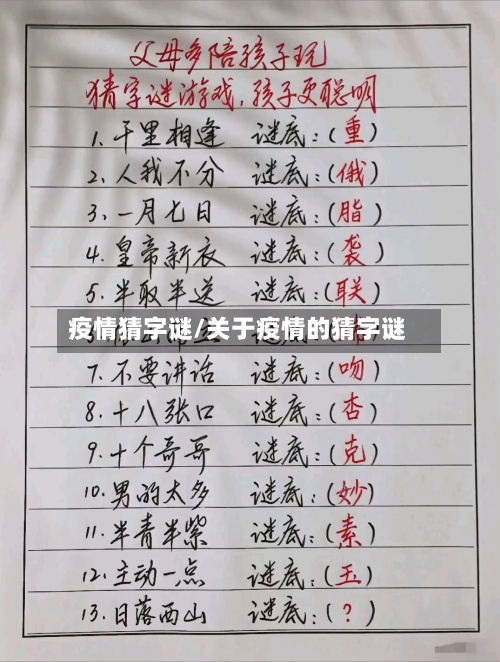 父母多陪孩子玩
猜字谜游戏,孩子更聪明
1.千里相逢 谜底:(重)
2、人我不分 谜底:(俄)
3、一月七日 谜底:(脂)
4.皇帝新衣 谜底:(袭)
5.半取半送 谜底:(联)
疫情猜字谜/关于疫情的猜字谜
7.不要讲话 谜底:(吻)
8.十八张口 谜底:(杏)
9.十个哥哥 谜底:(克)
10.男的太多 谜底:(妙)
11.半青半紫 谜底:(素)
12.主动一点 谜底:(玉)
13.日落西山 谜底:(?)